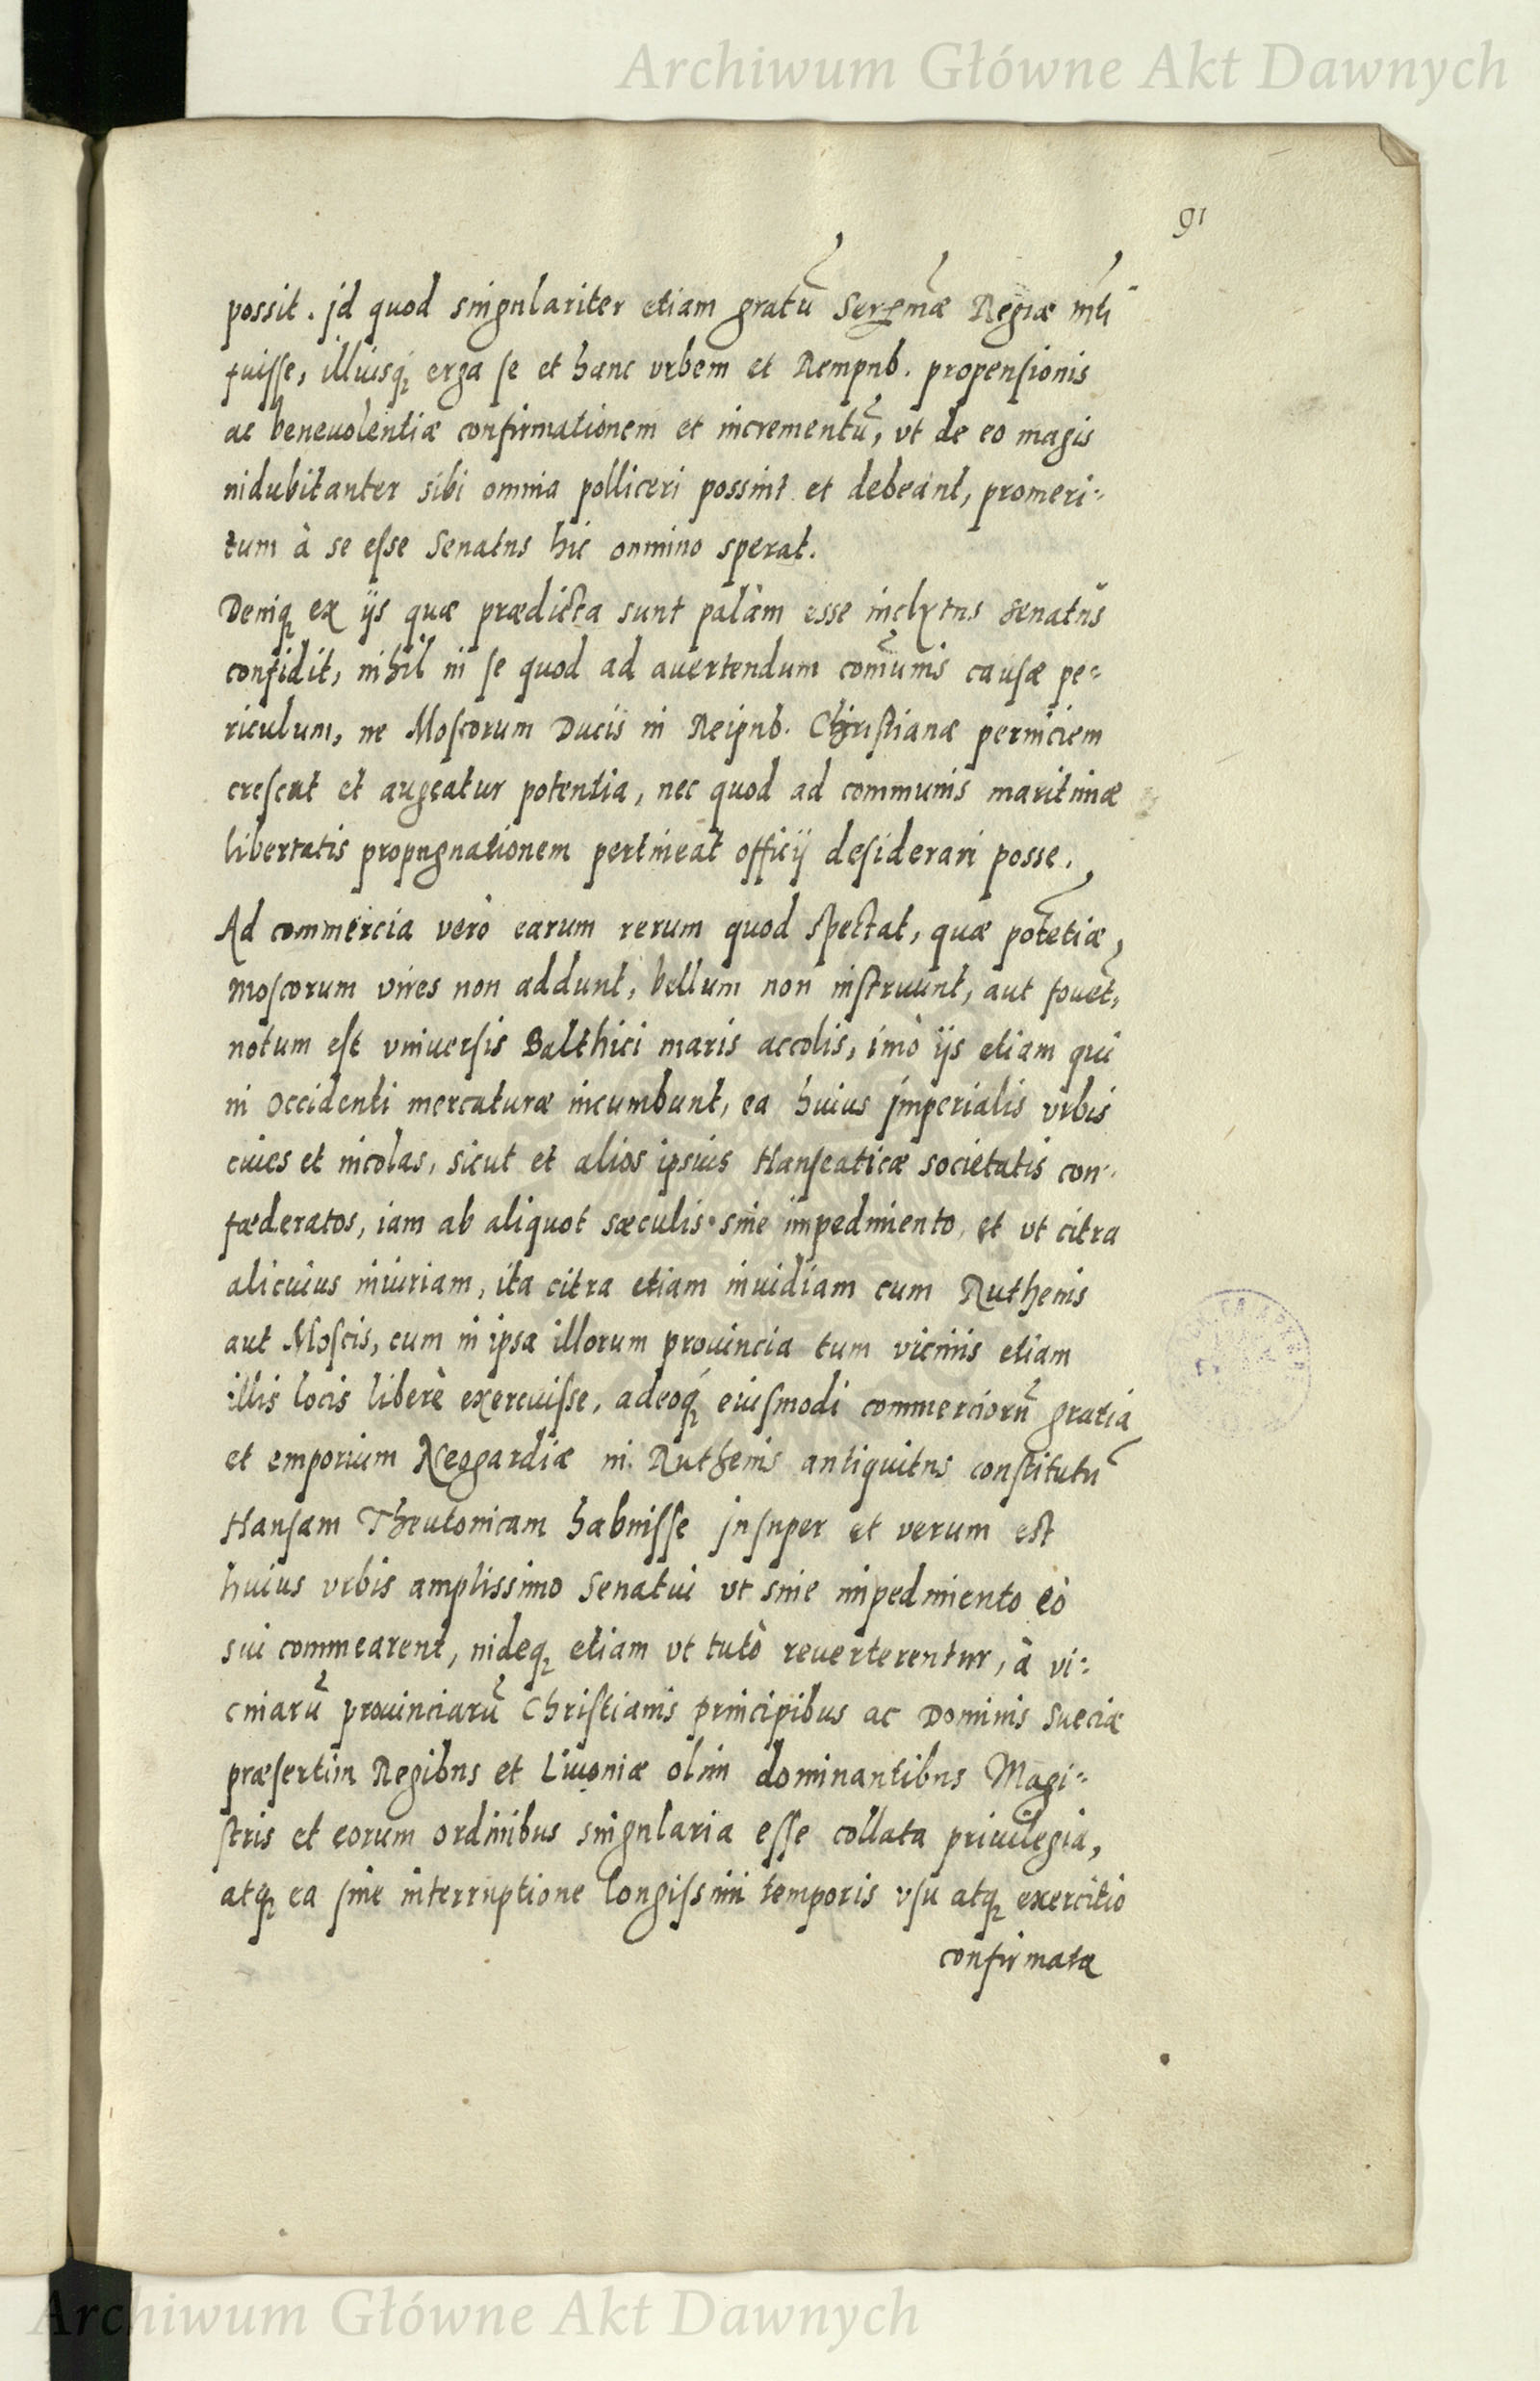 Archiwum Główne Akt Dawnych
91
possit. jd quod singulariter etiam gratū Serẽmæ Regiæ mti
fuisse, illiusq; erga se et hanc vrbem et Rempub. propensionis
ac beneuolentiæ confirmationem et incrementū, vt de eo magis
indubitanter sibi omnia polliceri possint et debeant, promeri-
tum à se esse Senatus hic omnino sperat.
Deniq; ex ijs quæ prædicta sunt palàm esse inclytus Senatus
confidit, nihil in se quod ad auertendum com̄unis causæ pe-
riculum, ne Moscorum Ducis in Reipub. Christianæ perniciem
crescat et augeatur potentia, nec quod ad communis maritimæ
libertatis propugnationem pertineat officij desiderari posse.
Ad commercia verò earum rerum quod spectat, quæ potẽtiæ,
Moscorum vires non addunt, bellum non instruunt, aut fouẽt,
notum est vniuersis Balthici maris accolis, imò ijs etiam qui
in occidenti mercaturæ incumbunt, ea huius jmperialis vrbis
ciues et incolas, sicut et alios ipsius Hanseaticæ societatis con-
fæderatos, iam ab aliquot sæculis sine impedimento, et vt citra
alicuius iniuriam, ita citra etiam inuidiam cum Ruthenis
aut Moscis, cum in ipsa illorum prouincia tum vicinis etiam
illis locis liberè exercuisse, adeoq; eiusmodi commerciorū gratia
et emporium Neogardiæ in Ruthenis antiquitus constitutū
Hansam Theutonicam habuisse jnsuper et verum est
huius vrbis amplissimo Senatui vt sine impedimento eò
sui commearent, indeq; etiam vt tutò reuerterentur, à vi-
cinarū prouinciarū Christianis principibus ac Dominis Sueciæ
præsertim Regibus et Liuoniæ olim dominantibus Magi-
stris et eorum ordinibus singularia esse collata priuilegia,
atq; ea sine interruptione longissimi temporis vsu atq; exercitio
confirmata
Archiwum Główne Akt Dawnych